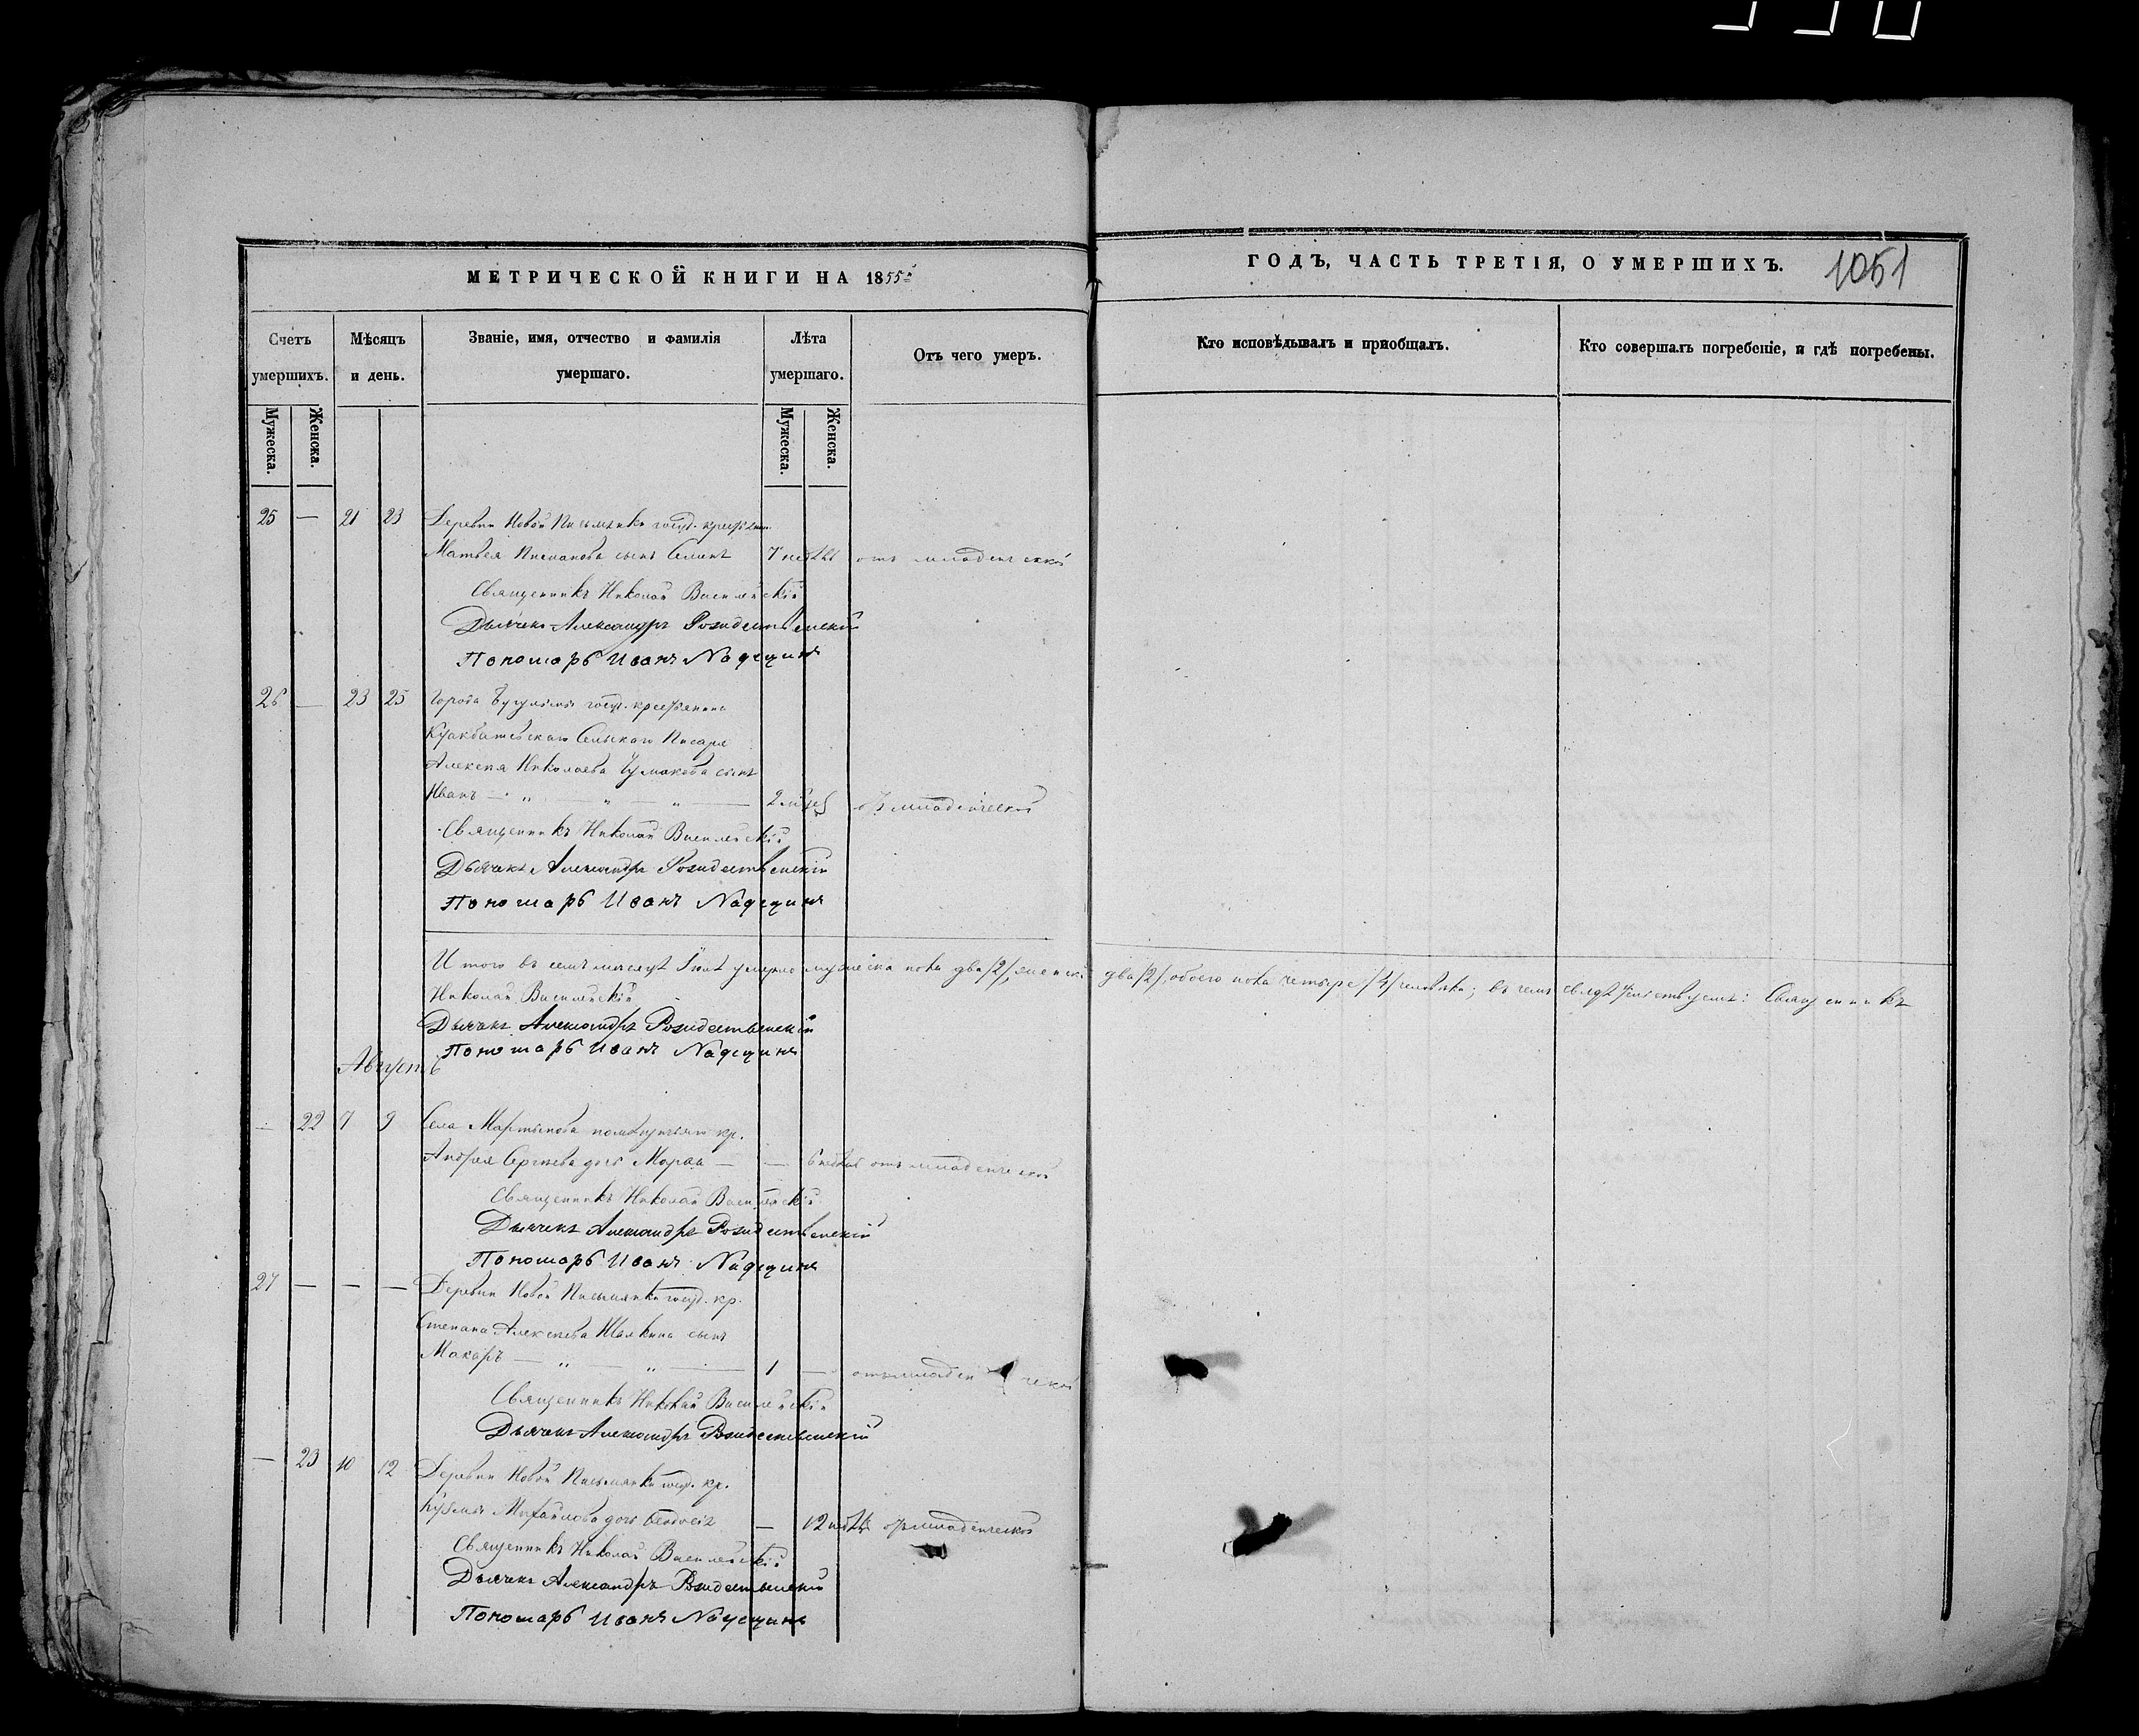 МЕТРИЧЕСКОЙ КНИГИ НА 1855й
ГОДЪ, ЧАСТЬ ТРЕТІЯ, О УМЕРШИХЪ. 1051
Счетъ умершихъ.
Мѣсяцъ и день.
Званіе, имя, отчество и фамилія умершаго.
Лѣта умершаго.
Отъ чего умеръ.
Кто исповѣдывалъ и пріобщалъ.
Кто совершалъ погребеніе, и гдѣ погребены.
Мужеска. Женска. Мужеска. Женска.
25 — 21 23 Деревни Новой Письмянки госуд. крестьянина
Матвея сынъ 7 недѣль отъ младенческой
Священникъ Николай
Дьячекъ Александръ Рождественскій
Пономарь Иванъ Надеждинъ
26 — 23 25 Города Бугульмы госуд. крестьянина
Сельскаго Писаря
Алексея Николаева Чумакова сынъ
Иванъ — „ — „ — „ — 2 отъ младенческой
Священникъ Николай
Дьячекъ Александръ Рождественскій
Пономарь Иванъ Надеждинъ
Итого въ семъ месяцѣ Іюлѣ умерло мужеска пола два /2/, женска два /2/, обоего пола четыре /4/ человѣка; въ чемъ и свидѣтельствуемъ: Священникъ
Николай
Дьячекъ Александръ Рождественскій
Пономарь Иванъ Надеждинъ
Августъ
— 22 7 9 Села Мартынова кр.
Андрея Сергеева дочь — — 6 недѣль отъ младенческой
Священникъ Николай
Дьячекъ Александръ Рождественскій
Пономарь Иванъ Надеждинъ
27 — — — Деревни Новой Письмянки госуд. кр.
Степана Алексеева сынъ
Макаръ — „ — „ — 1 — отъ младенческой
Священникъ Николай
Дьячекъ Александръ Рождественскій
— 23 10 12 Деревни Новой Письмянки госуд. кр.
Кузьмы Михайлова дочь — 12 недѣль отъ младенческой
Священникъ Николай
Дьячекъ Александръ Рождественскій
Пономарь Иванъ Надеждинъ